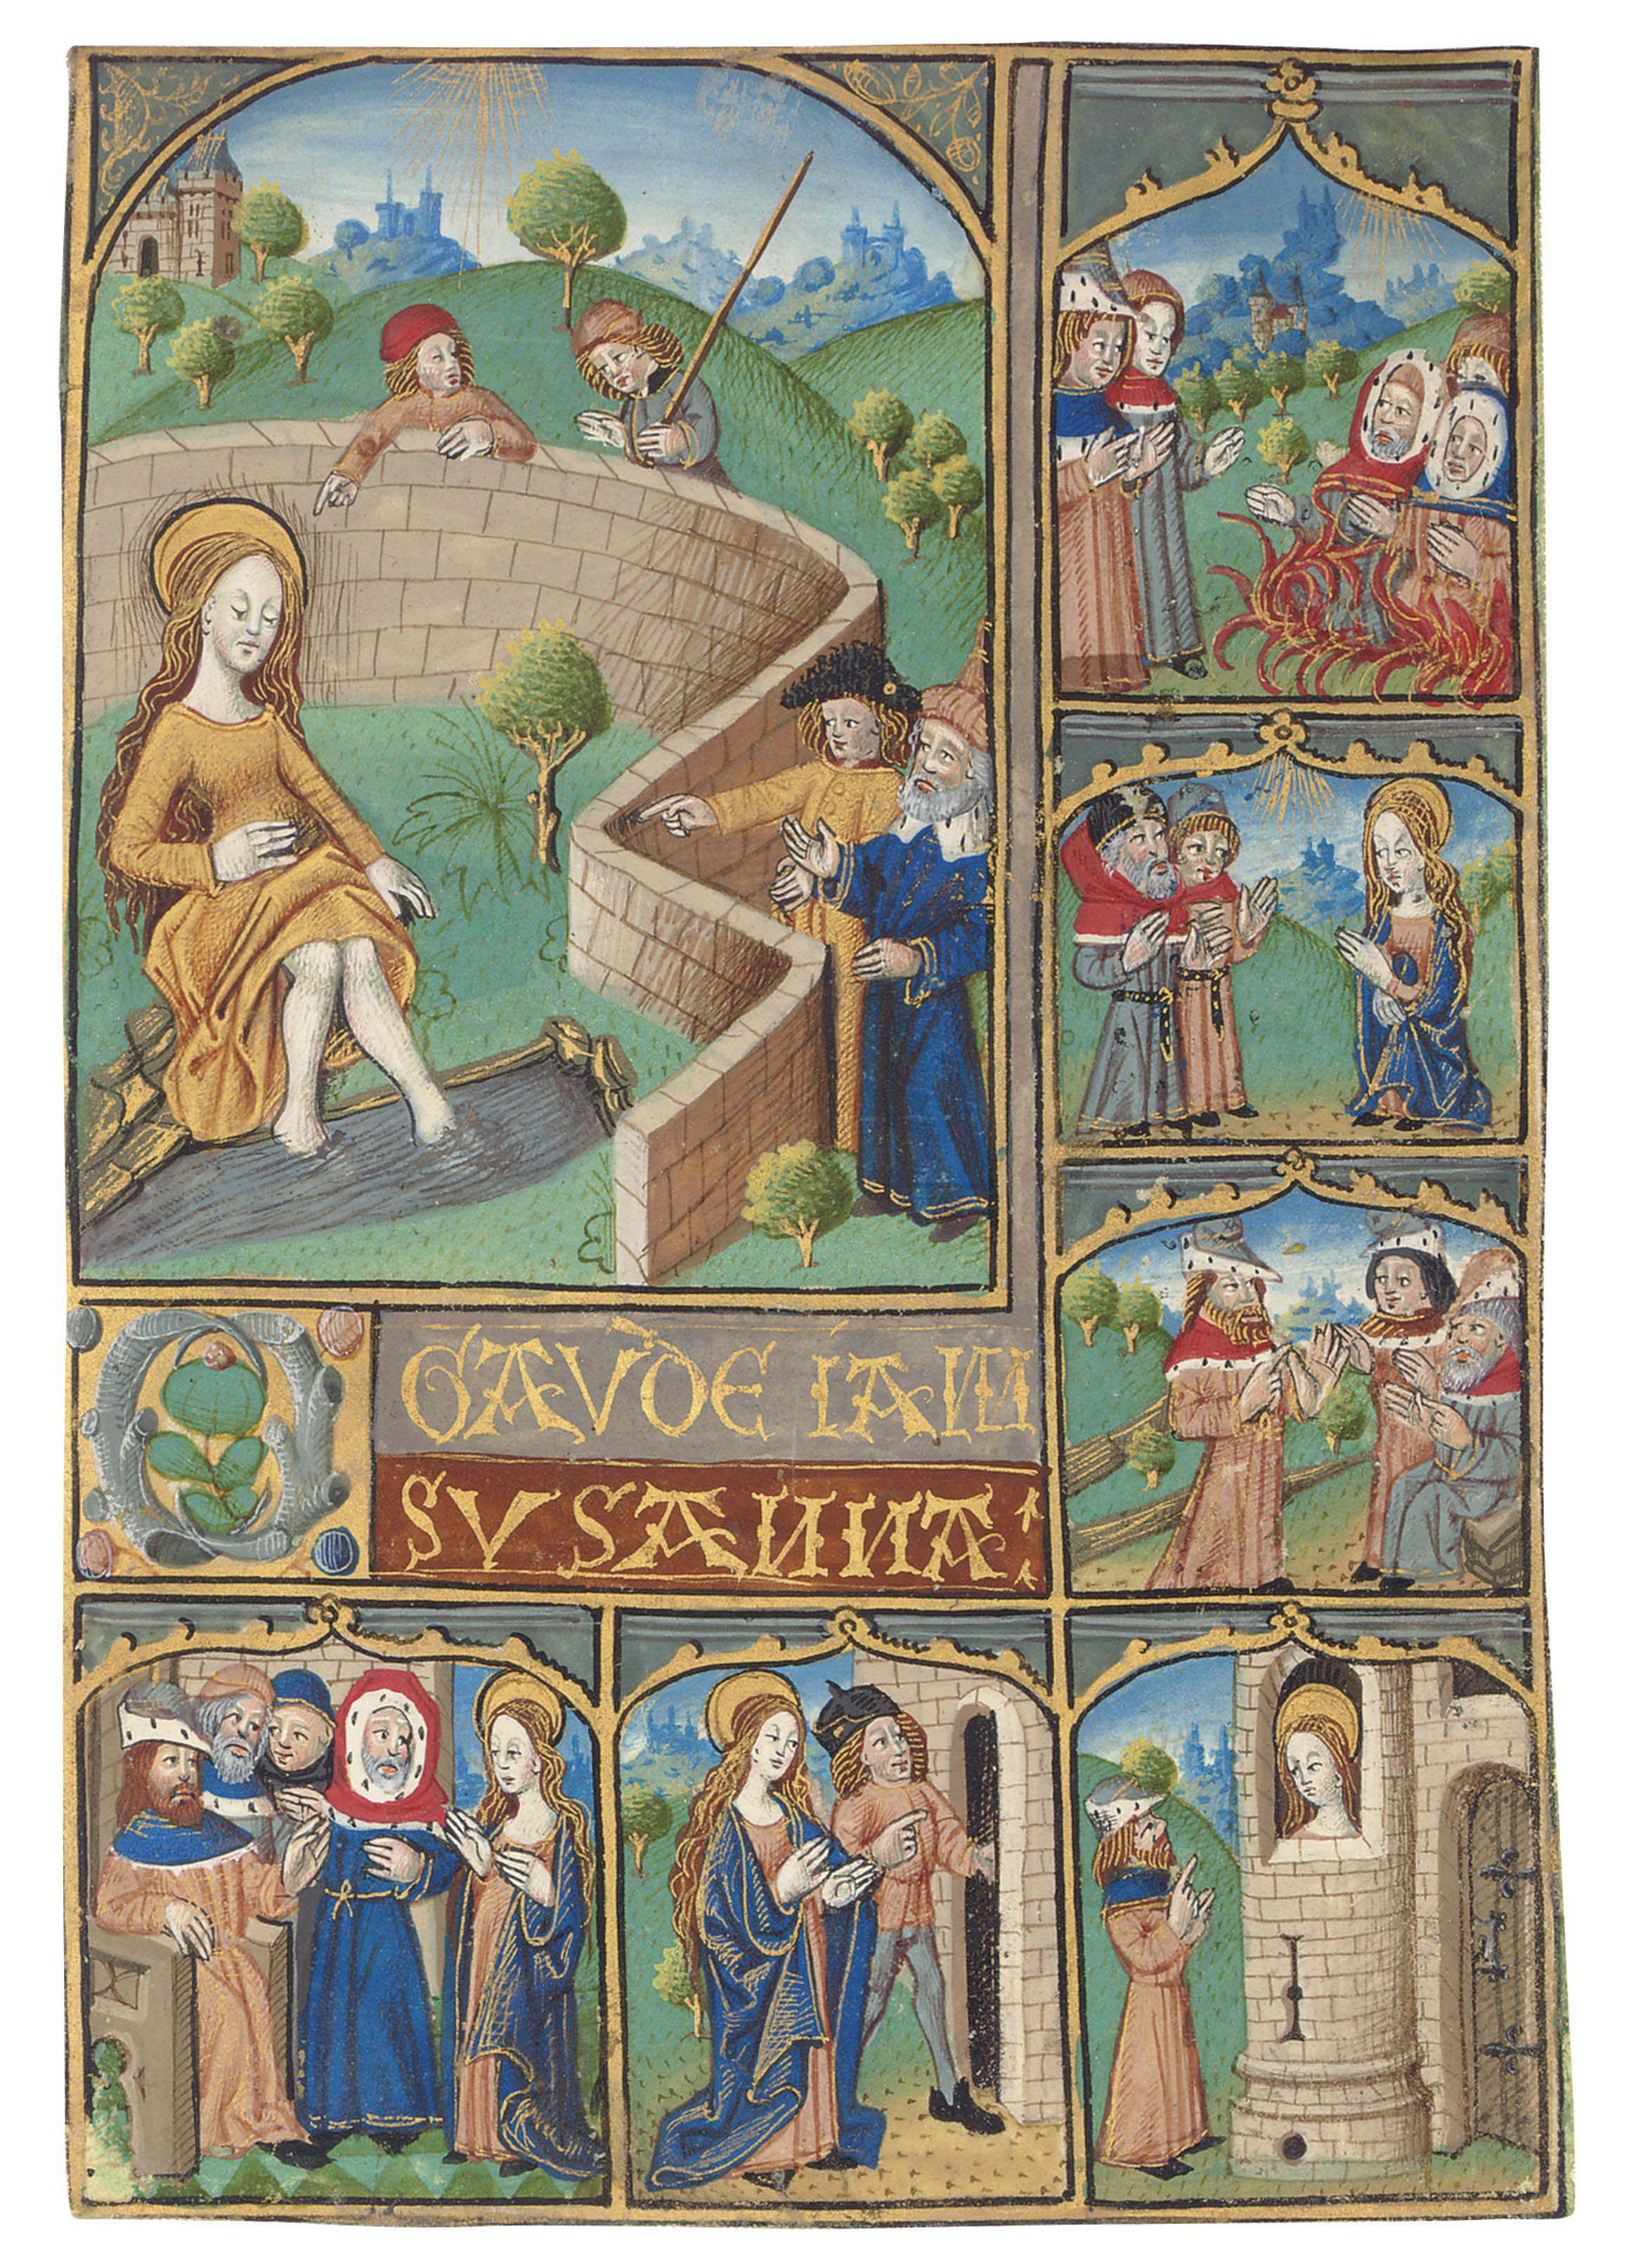 O GAVDE IAM
SVSANNA: